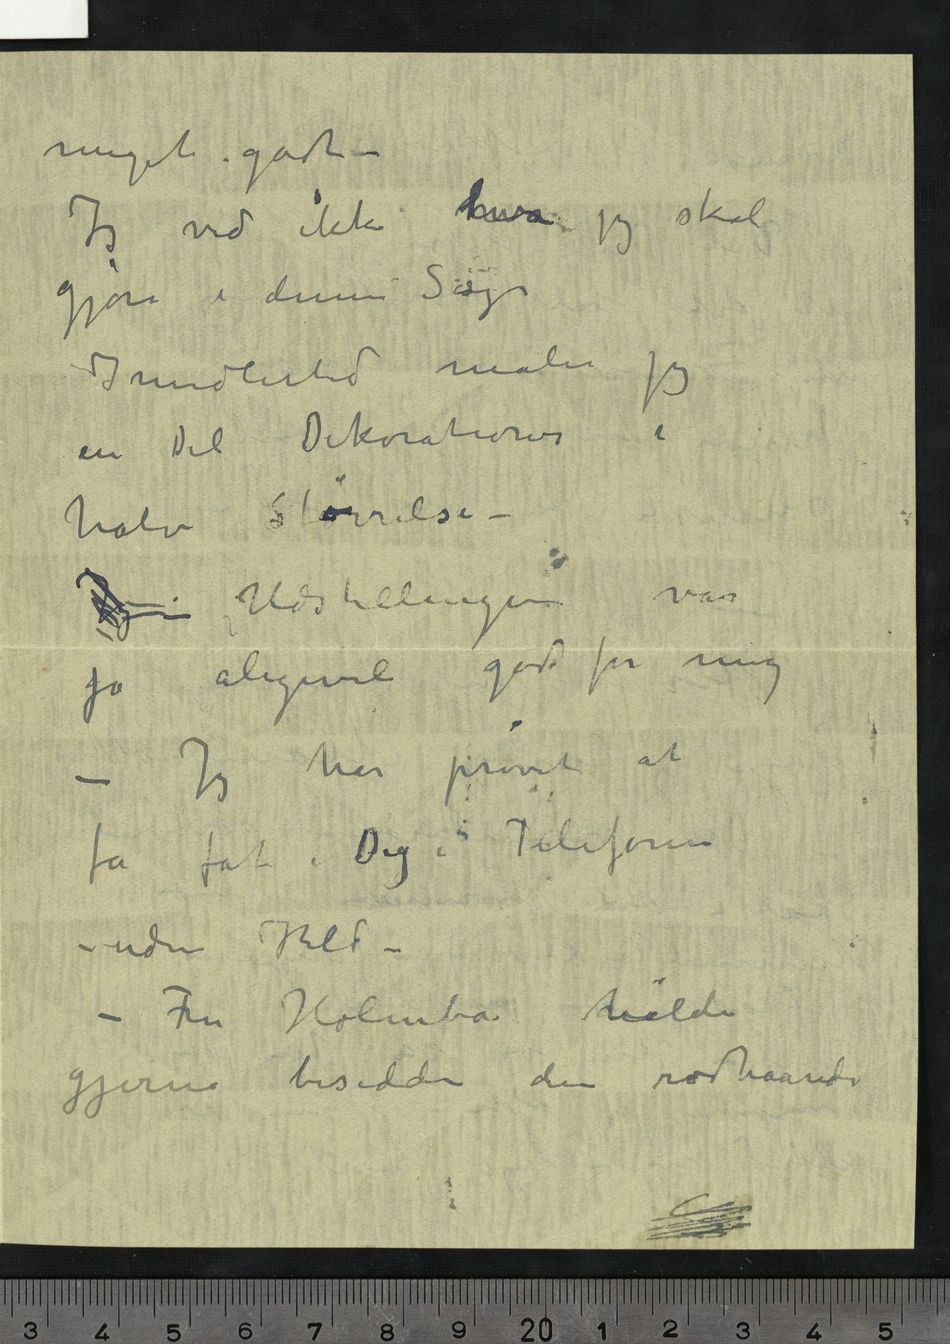 meget godt –
Jeg ved ikke hva jeg skal
gjøre i denne Sag
Imidlertid maler jeg
en Del Dekorationer i
halv Størrelse –
Udstillingen var
jo aligevel god for mig
– Jeg har prøvet at
fa fat i Dig i Telefonen
– uden Held –
– Fru Holmboe
gjerne besidde den rødhaarede